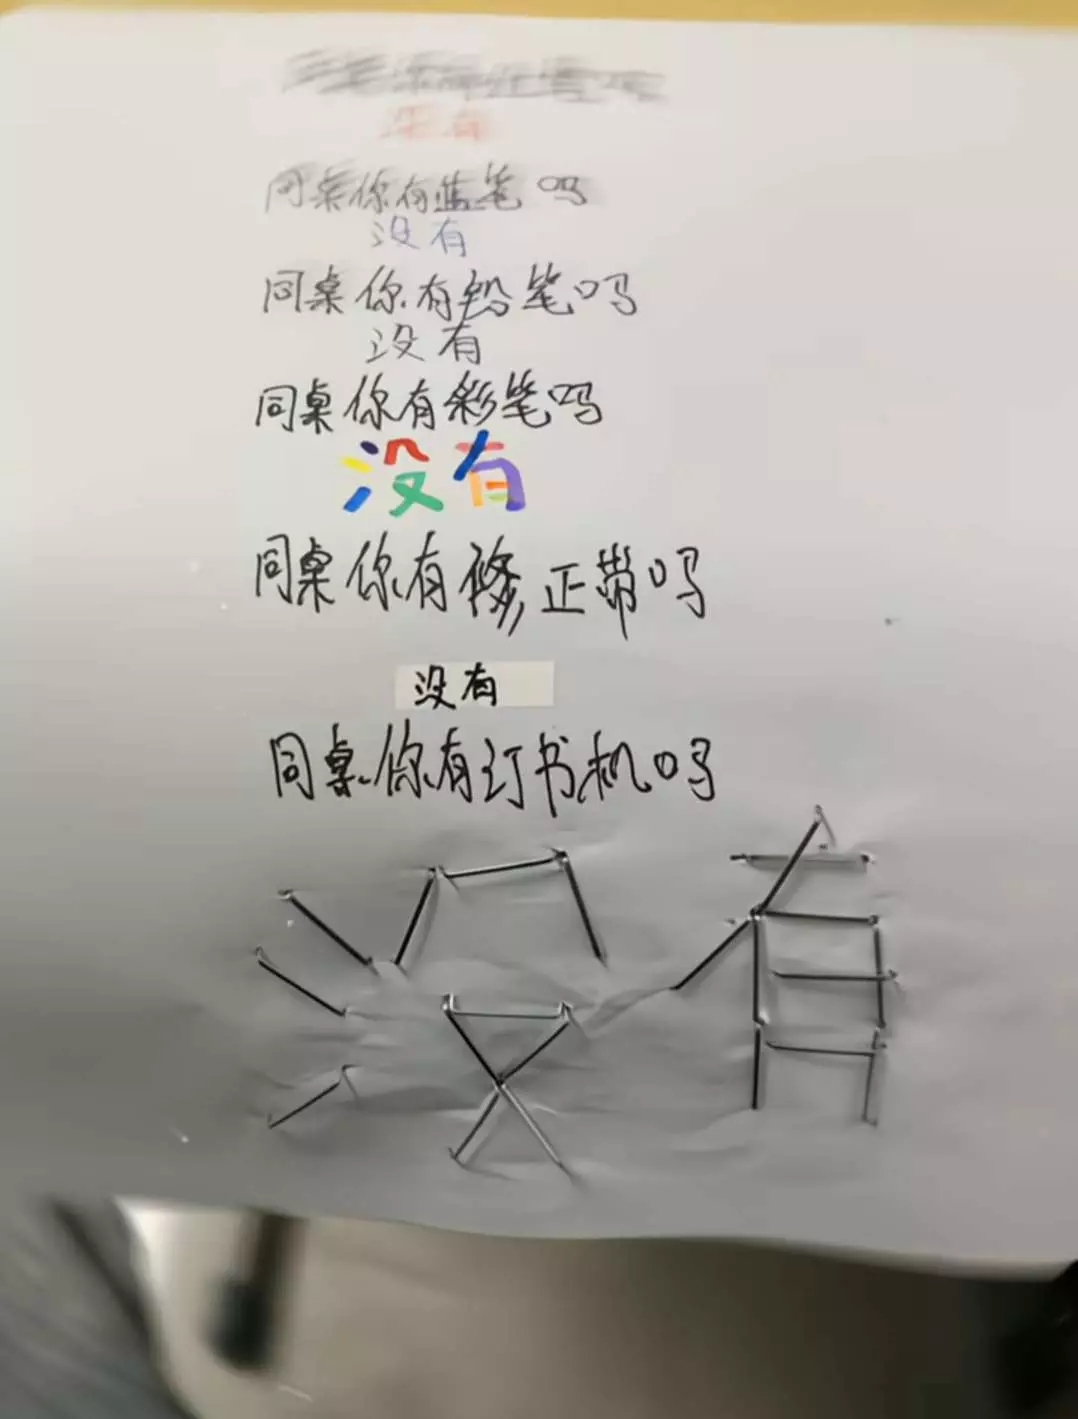 没有
同桌你有蓝笔吗
没有
同桌你有铅笔吗
没有
同桌你有彩笔吗
没有
同桌你有修正带吗
没有
同桌你有订书机吗
没有